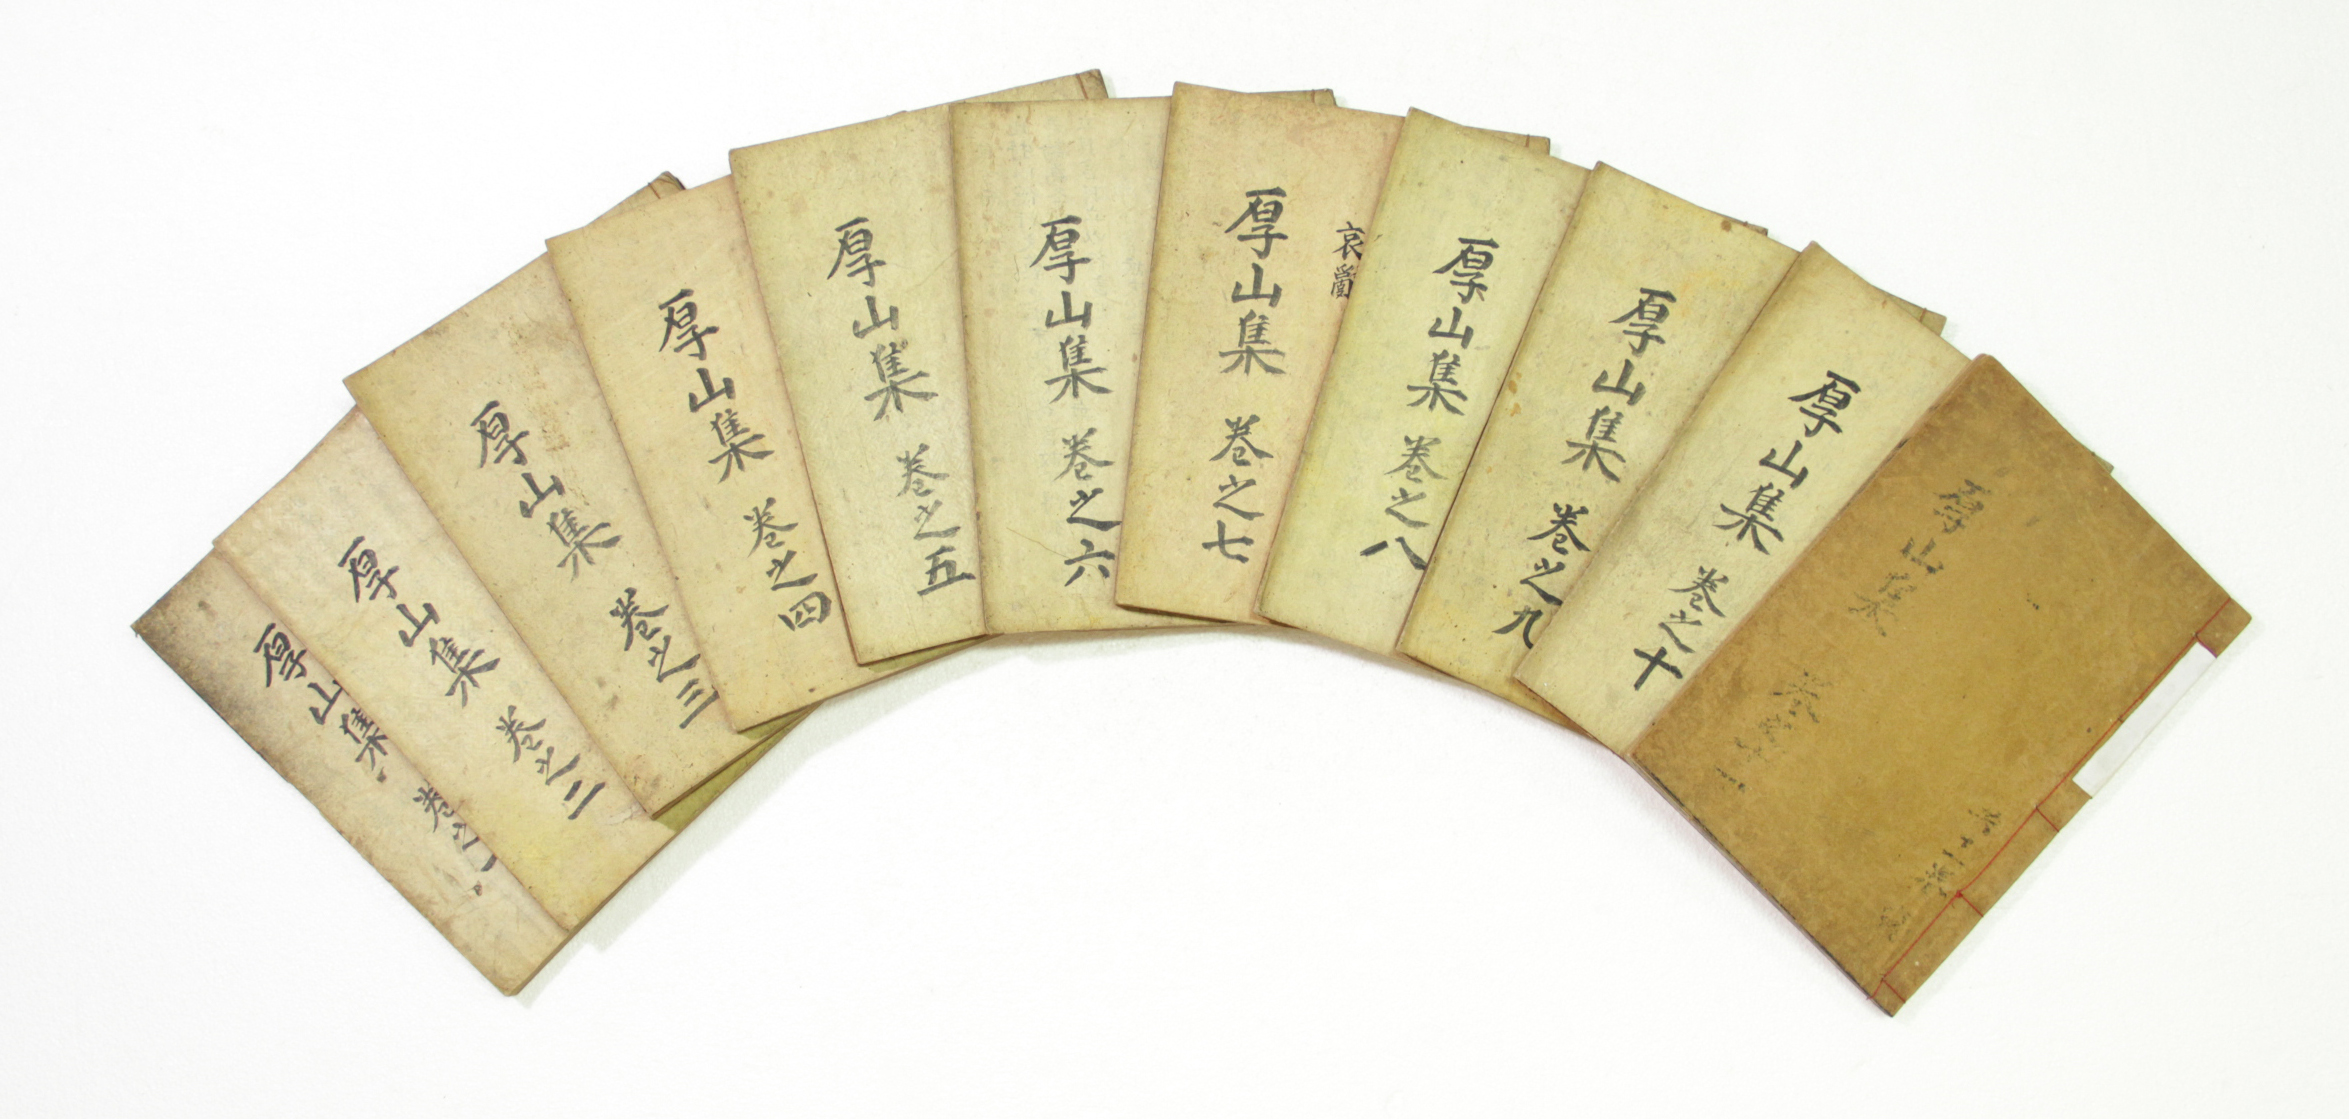 厚山集 卷之一
厚山集 卷之二
厚山集 卷之三
厚山集 卷之四
厚山集 卷之五
厚山集 卷之六
哀
厚山集 卷之七
厚山集 卷之八
厚山集 卷之九
厚山集 卷之十
厚山集 卷之十一
共十一